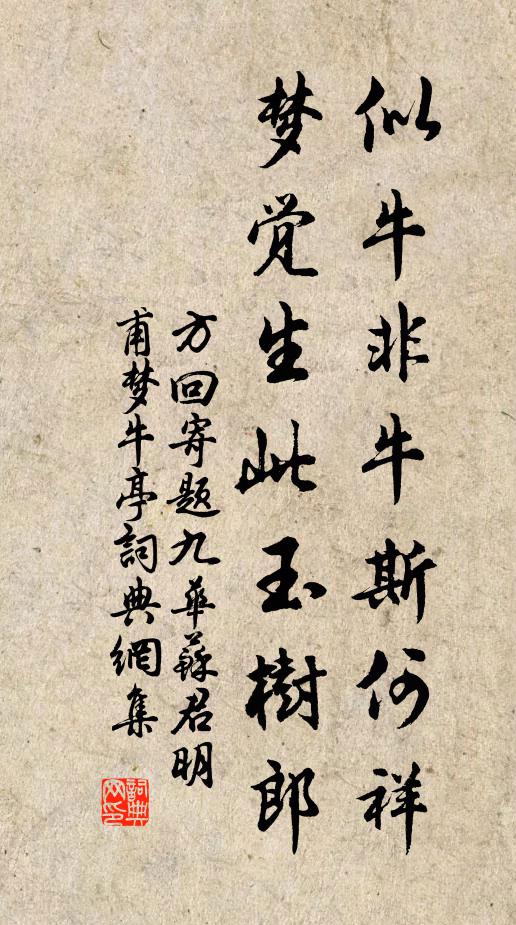 似牛非牛斯何祥
梦觉生此玉樹郎
方回寄题九華蘇君明
甫梦牛亭詞典網集
詞典
网印